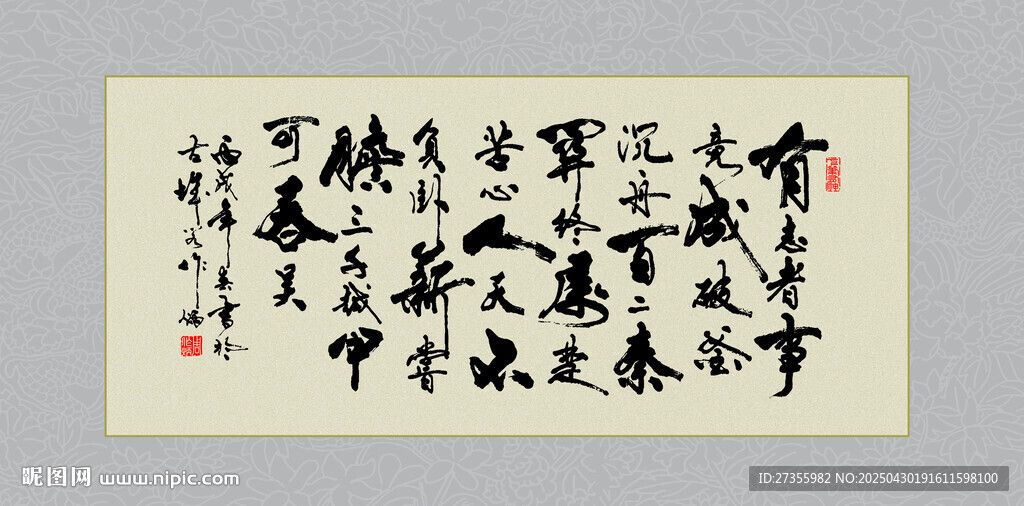 有志者事
竟成破釜
沉舟百二秦
關终屬楚
苦心人天不
負卧薪嘗
膽三千越甲
可吞吴
丙戌年春書於
古
昵图网 www.nipic.com
ID:27355982 NO:20250430191611598100